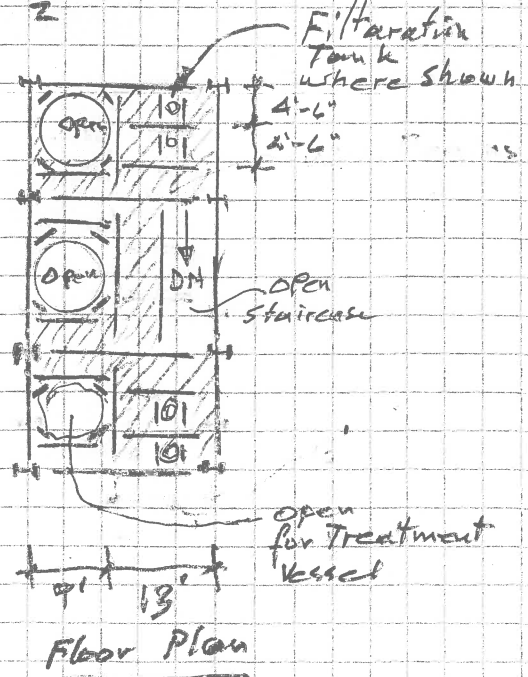 2
Filtaration
Tank
where shown
4'-6"
4'-6"
Open
Open
DN
open
Staircase
open
for Treatment
Vessel
9'
13'
Floor Plan